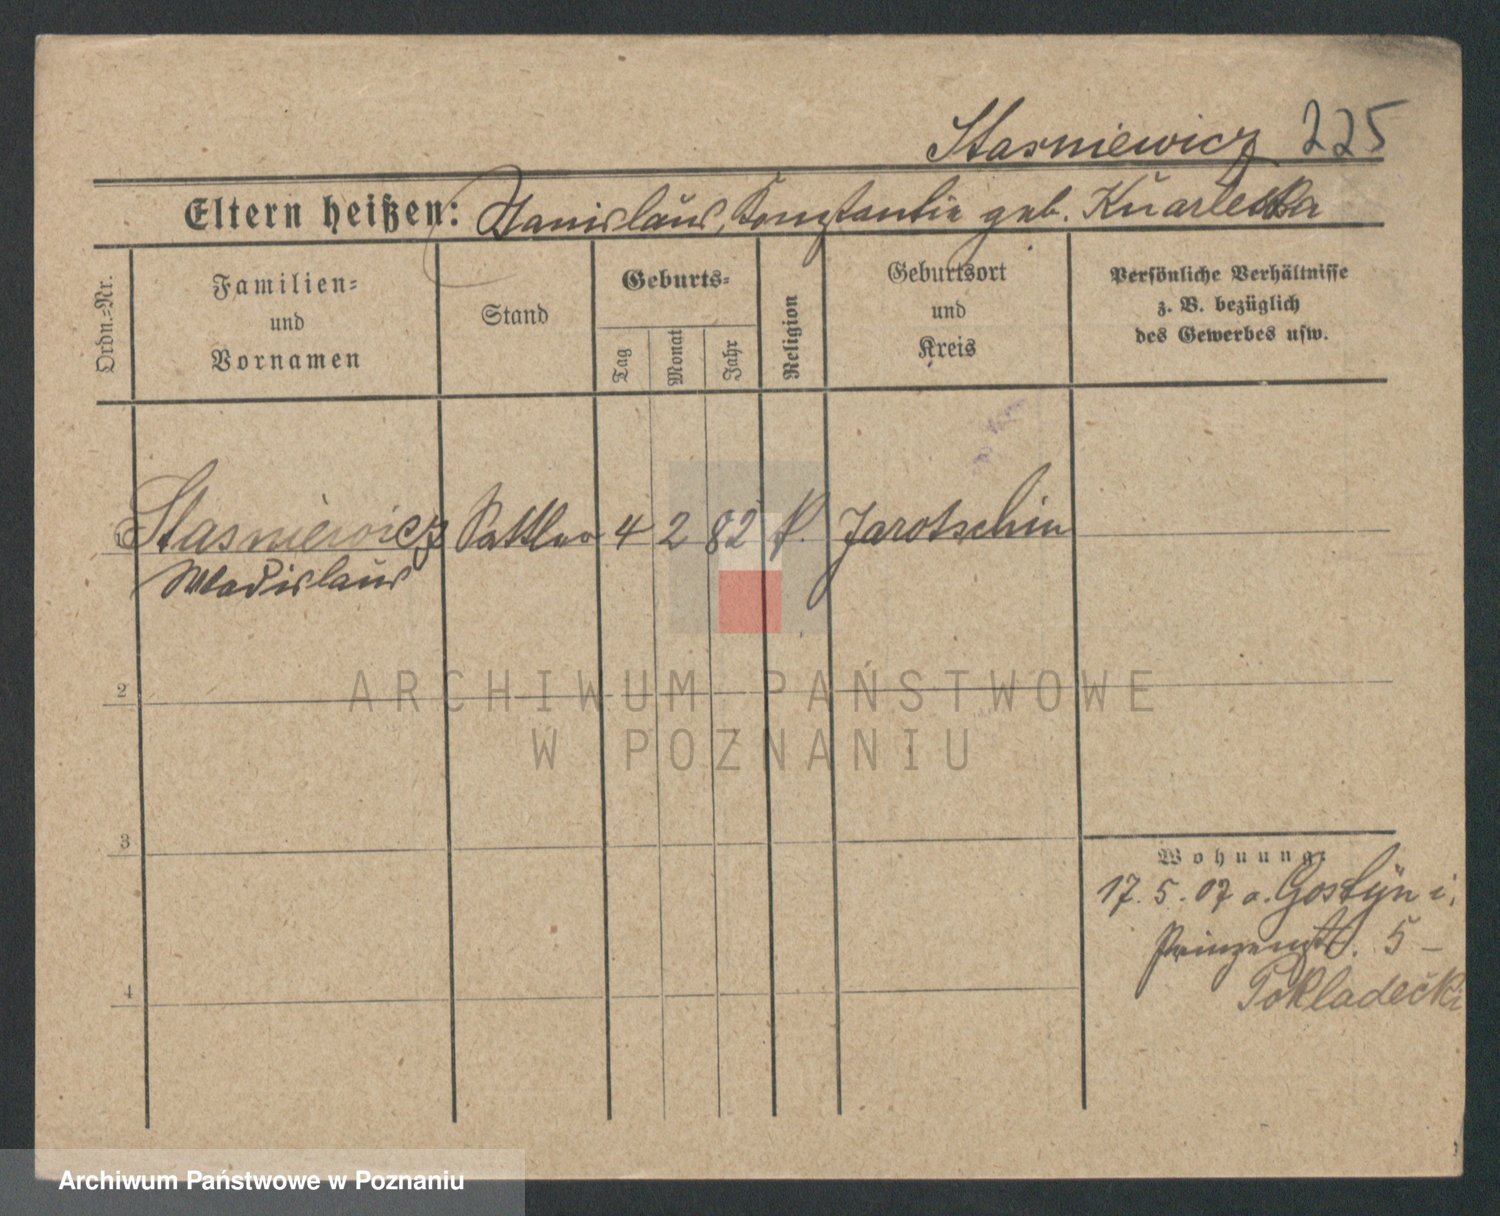 Stasniewicz 225
Eltern heißen: Stanislaus, Konstantin geb. Knarlecka
Ordn.-Nr.
Familien-
und
Vornamen
Stand
Geburts-
Tag
Monat
Jahr
Religion
Geburtsort
und
Kreis
Persönliche Verhältnisse
z. B. bezüglich
des Gewerbes usw.
1 Stasniewicz Sattler 4 2 82 k. Jarotschin
Wladislaus
2
3
4
Wohnung:
17. 5. 07 a. Gostyn i.
Prinzenstr. 5 –
Pokladecki
ARCHIWUM PAŃSTWOWE
W POZNANIU
Archiwum Państwowe w Poznaniu